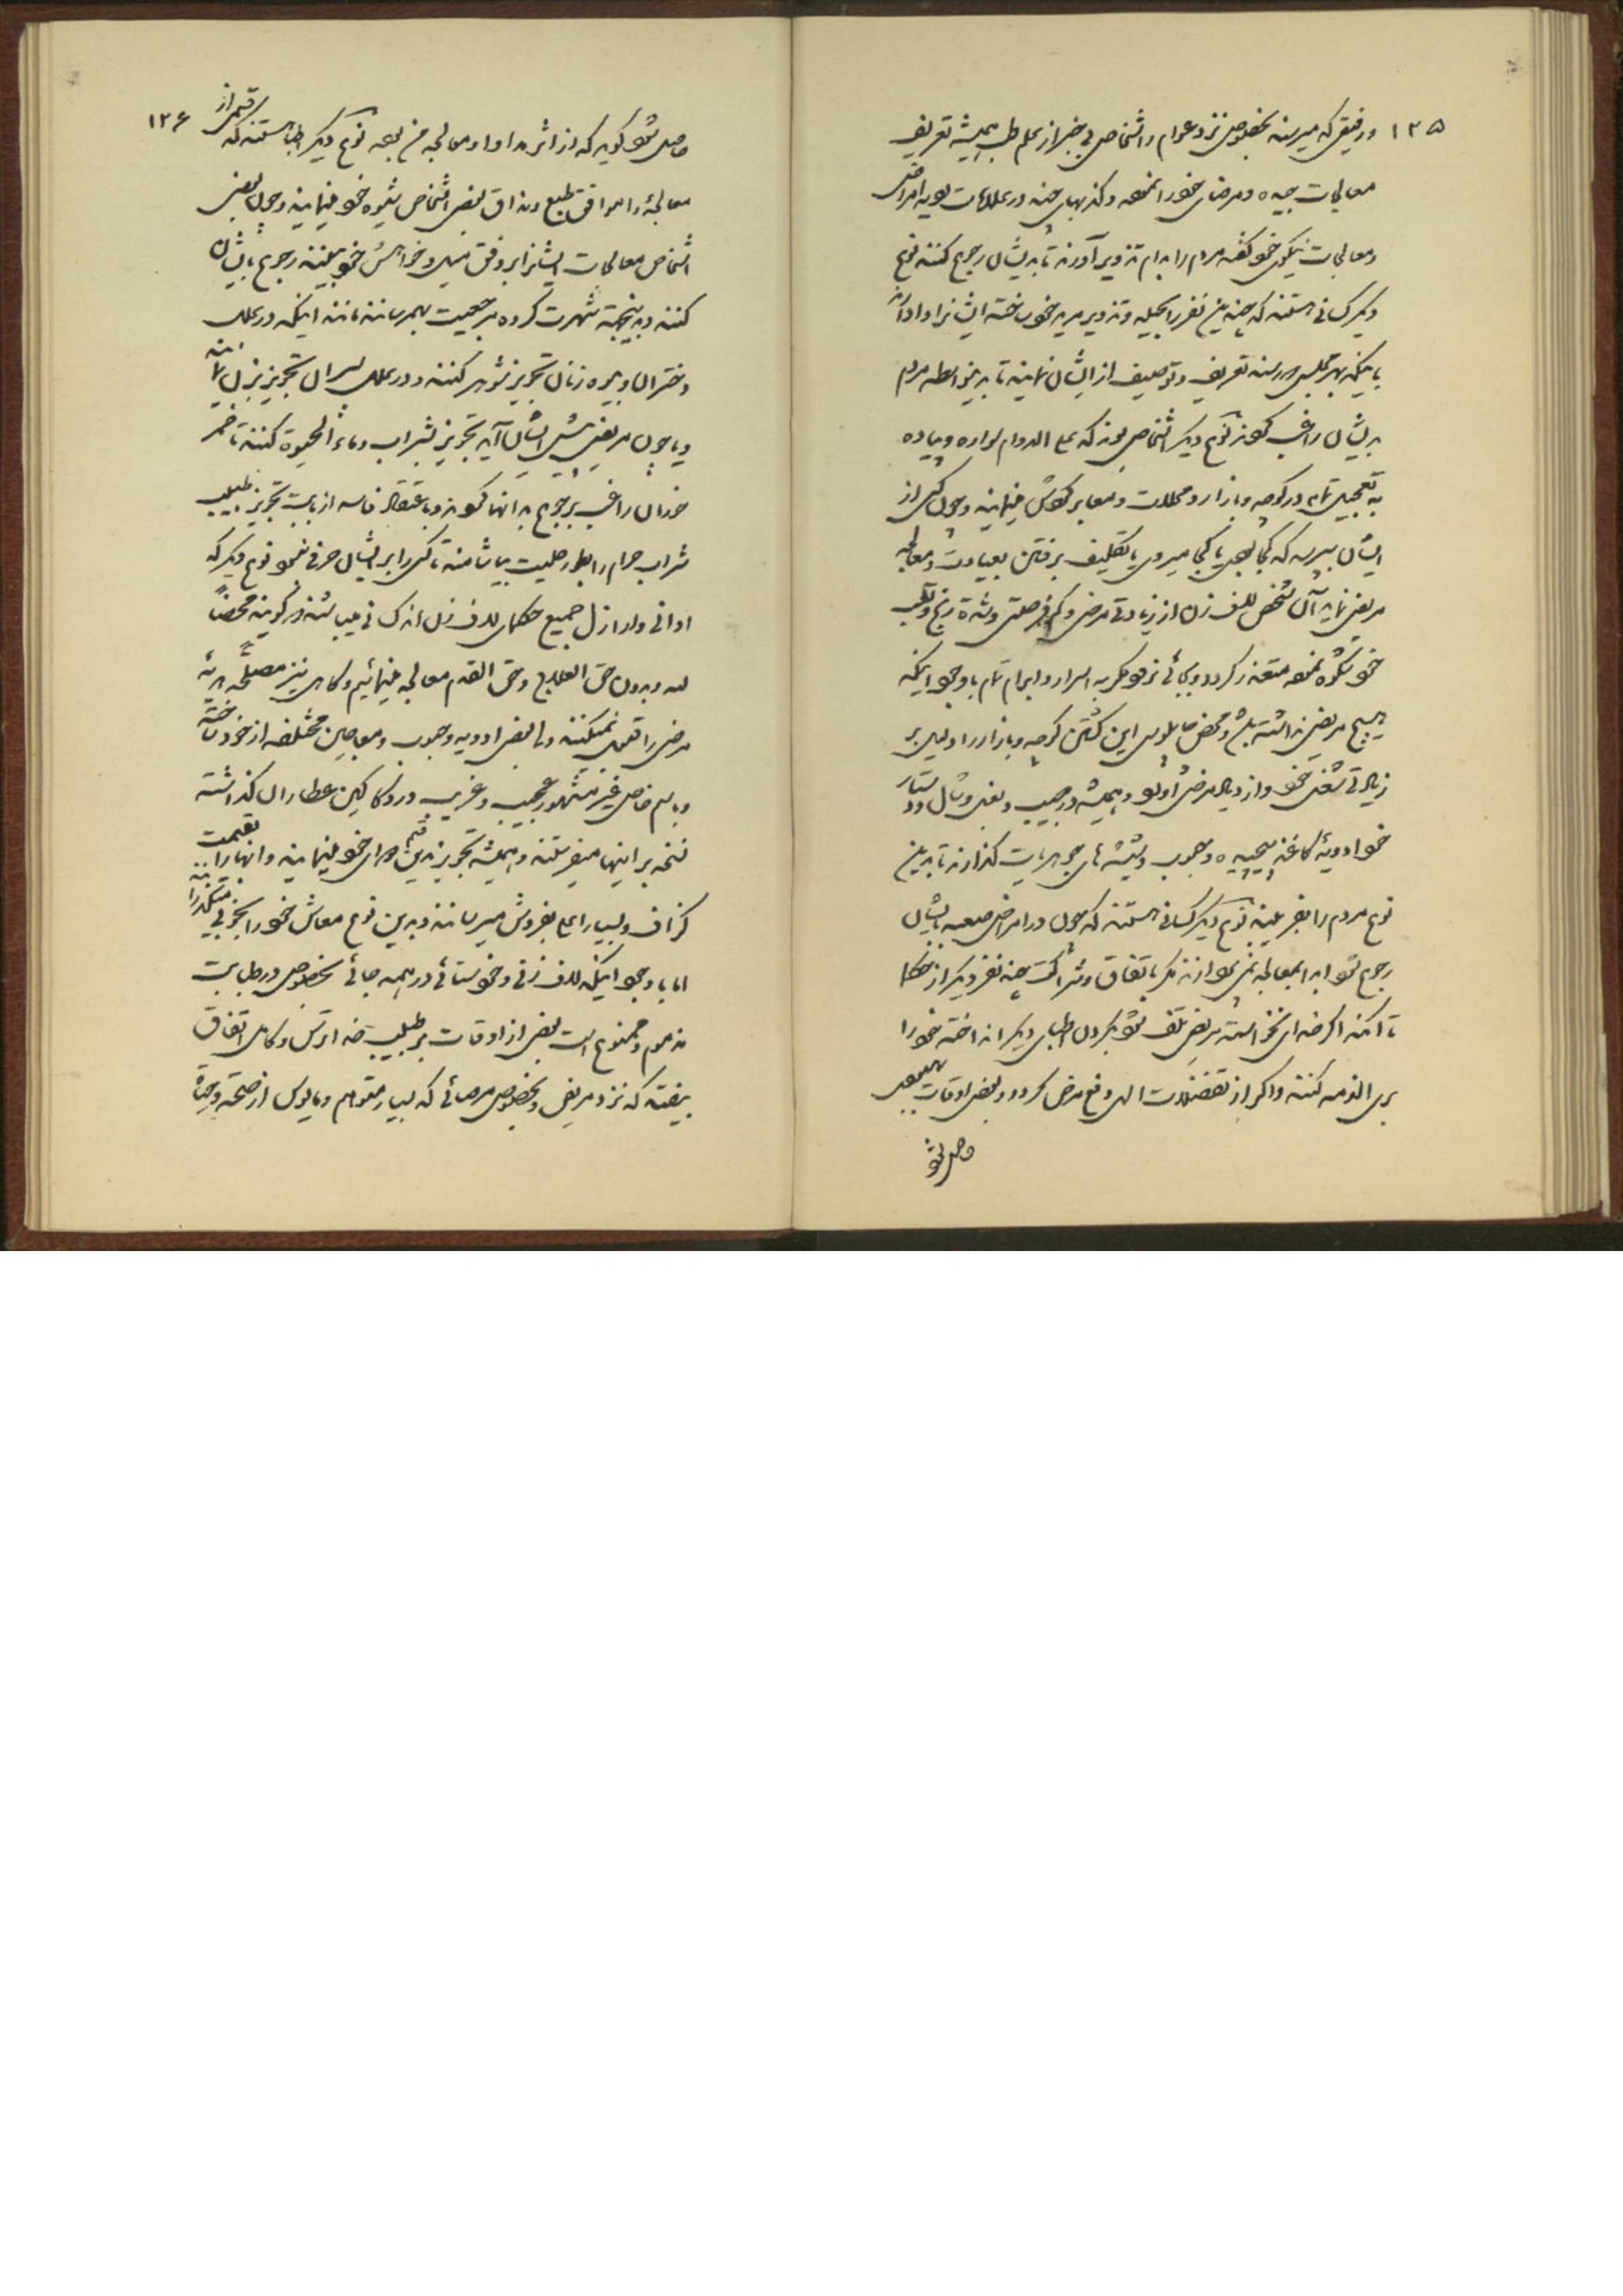 ۱۳۵
و رفیقی که میرسند بخصوص نزد عوام و اشخاص بی خبر از علم طب همیشه تعریف
معالجات جیده و مرضای خود را نموده و کذبهای چند در علامات بویه امراض
و معالجات نیکوی خود گفته مردم را بدام تزویر آورند تا بدیشان رجوع کنند نوع
دیگر کسانی هستند که چند نفر را بحیله و تزویر مرید خود ساخته ایشانرا وادارند
باینکه بهر مجلس میرسند تعریف و توصیف از ایشان نمایند تا بدینواسطه مردم
بدیشان راغب گردند نوع دیگر اشخاصی بوند که علی الدوام سواره و پیاده
به تعجیل تمام در کوچه و بازار و محلات و معابر گردش مینمایند و چون کسی از
ایشان بپرسد که کجا بودی یا کجا میروی یا تکلیف برفتن بعیادت و معالجه
مریضی نماید آن شخص لاف زن از زیادتی مرضی و کم فرصتی و شدة رنج و تعب
خود شکوه نموده متعذر گردد و بجائی نرود مگر به اسرار و ابرام تمام با وجود اینکه
هیچ مریضی نداشته باشد و محض چاپلوسی این گشتن کوچه و بازار را دلیل بر
زیادتی شغل خود و ازدیاد مرضی آورد و همیشه در جیب و بغل و شال و دستار
خود ادویهٔ کاغذ پیچیده و حبوب و شیشه های جوهریات گذارند تا بدین
نوع مردم را بفریبند نوع دیگر کسانی هستند که چون در امراض صعبه بایشان
رجوع شود ابدا بمعالجه نمی پردازند مگر باتفاق و شراکت چند نفر دیگر از حکما
تا آنکه اگر خدای نخواسته مریض تلف شود بگردن اطبای دیگر انداخته خود را
بری الذمه کنند و اگر از تفضلات الهی دفع مرض گردد و بعضی اوقات بهبودی
حاصل شود
۱۳۶
حاصل شود گوید که از اثر مداوا و معالجه من بود نوع دیگر اطبا هستند که قسمی از
معالجهٔ را موافق طبع و مذاق بعضی اشخاص شیوه خود مینمایند و چون بعضی
اشخاص معالجات ایشانرا بر وفق میل و خواهش خود بینند رجوع بایشان
کنند و به نتیجه شهرت کرده مرجعیت بهم رسانند مانند اینکه در علل
دختران و بیوه زنان تجویز شوهر کنند و در علل پسران تجویز نزل نمایند
و یا چون مریضی پیش ایشان آید تجویز بشراب و ماء الحیوة کنند تا خمر
خوران راغب برجوع بدانها گردند و باعتقاد فاسد از بابت تجویز طبیب
شراب حرام را بطور حلیت بیاشامند تا کسی را بر ایشان حرفی نبود نوع دیگر که
ادانی و ارازل جمیع حکمای لاف زن اند کسانی میباشند که گویند محضاً
لله و بدون حق العلاج و حق القدم معالجه مینمائیم و گاهی نیز مصلحة هدیه
مرضی را قبول نمیکنند و اما بعضی ادویه و حبوب و معاجین مختلفه از خود ساخته
و باسم خاص غیر مشهور عجیب و غریب در دکاکین عطاران گذاشته
نسخه بر اینها میفرستند و همیشه تجویز بدین قسم دوای خود مینمایند و آنها را بقیمت
گزاف و بسیار اعلی بفروش میرسانند و بدین نوع معاش خود را بخوبی میگذرانند
اما با وجود اینکه لاف زنی و خودستائی در همه جائی بخصوص در طبابت
مذموم و ممنوع است بعضی از اوقات بر طبیب خداترس و کامل اتفاق
بیفتد که نزد مریض و بخصوص مرضائی که بسیار متوهم و مایوس از صحت و حیات